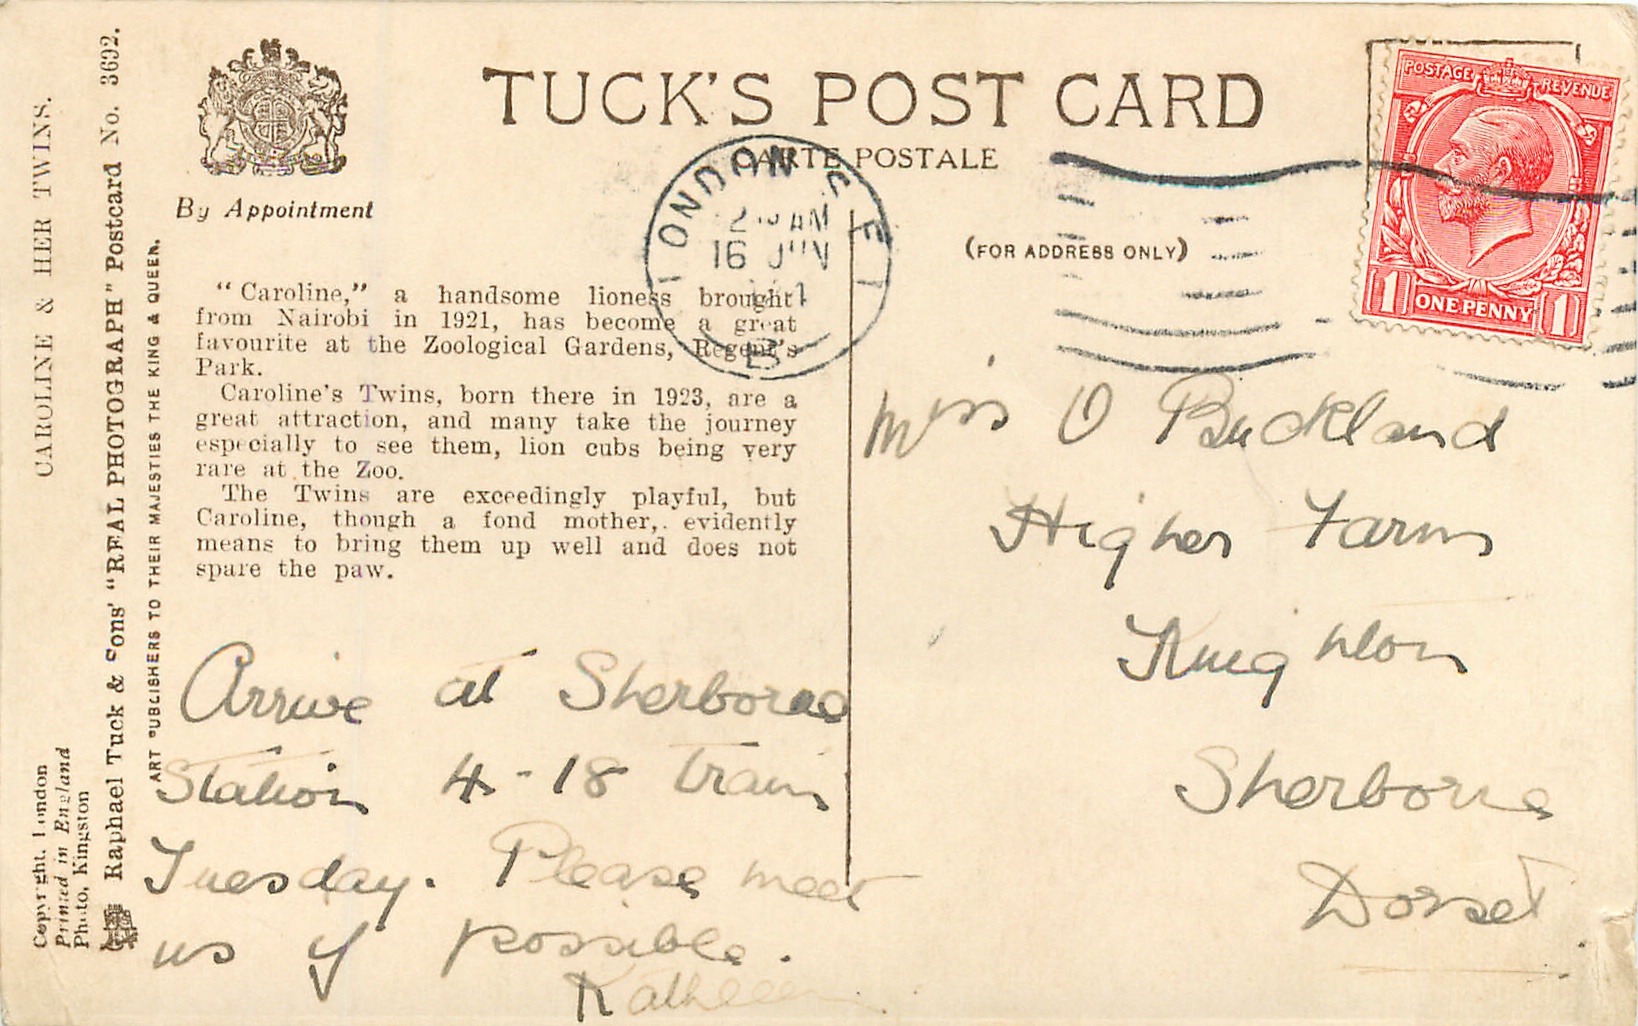 TUCK'S POST CARD
CARTE POSTALE
(FOR ADDRESS ONLY)
By Appointment
POSTAGE REVENUE
1 ONE PENNY 1
LONDON S.E.1
AM
16 JUN
B
"Caroline," a handsome lioness brought
from Nairobi in 1921, has become a great
favourite at the Zoological Gardens, Regent's
Park.
Caroline's Twins, born there in 1923, are a
great attraction, and many take the journey
especially to see them, lion cubs being very
rare at the Zoo.
The Twins are exceedingly playful, but
Caroline, though a fond mother, evidently
means to bring them up well and does not
spare the paw.
Arrive at Sherborne
Station 4-18 train
Tuesday. Please meet
us if possible.
Kathleen
Miss O Buckland
Higher Farm
Knighton
Sherborne
Dorset
CAROLINE & HER TWINS.
Raphael Tuck & Sons' "REAL PHOTOGRAPH" Postcard No. 3692.
ART PUBLISHERS TO THEIR MAJESTIES THE KING & QUEEN.
Copyright, London
Printed in England
Photo, Kingston